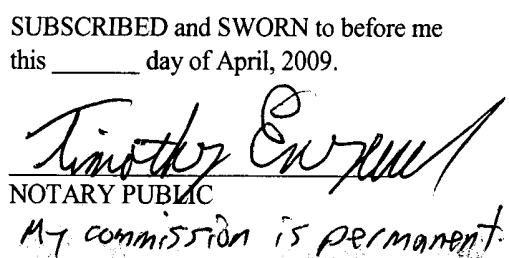 SUBSCRIBED and SWORN to before me
this ______ day of April, 2009.
Timothy
NOTARY PUBLIC
My commission is permanent.